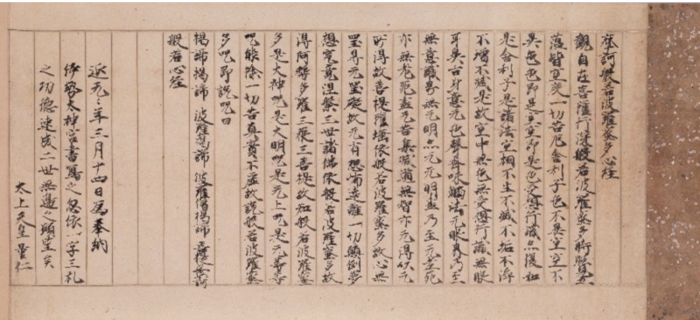 摩訶般若波羅蜜多心經
觀自在菩薩行深般若波羅蜜多時照見五
蘊皆空度一切苦厄舍利子色不異空空不
異色色即是空空即是色受想行識亦復如
是舍利子是諸法空相不生不滅不垢不淨
不增不減是故空中無色無受想行識無眼
耳鼻舌身意无色聲香味觸法无眼界乃至
無意識界無无明亦无无明盡乃至无老死
亦无老死盡无苦集滅道無智亦无得以无
所得故菩提薩埵依般若波羅蜜多故心無
罣礙无罣礙故无有恐怖遠離一切顛倒夢
想究竟涅槃三世諸佛依般若波羅蜜多故
得阿耨多羅三藐三菩提故知般若波羅蜜
多是大神呪是大明呪是无上呪是无等等
呪能除一切苦真實不虛故說般若波羅蜜
多呪即說呪曰
揭諦揭諦 波羅揭諦 波羅僧揭諦 菩提娑婆訶
般若心經
延元年三月十四日為奉納
伊勢太神宮書寫之忽依一字三礼
之功德速成二世無邊之願望矣
太上天皇量仁